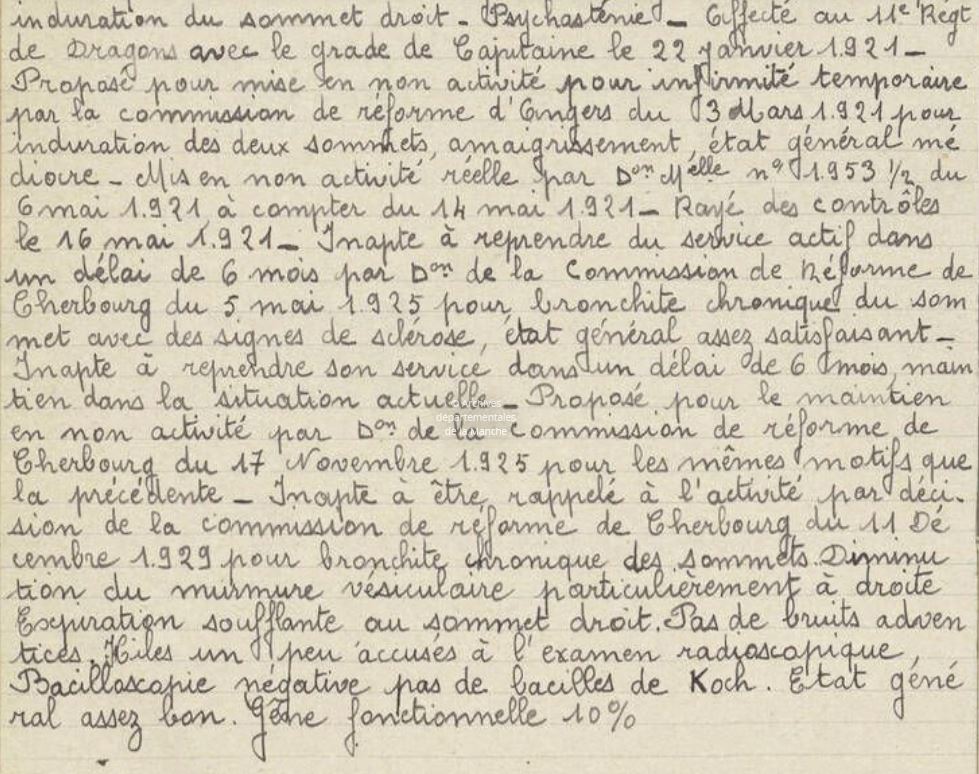 induration du sommet droit - Psychasténie - Affecté au 11e Régt
de Dragons avec le grade de Capitaine le 22 janvier 1.921 -
Proposé pour mise en non activité pour infirmité temporaire
par la commission de réforme d'Angers du 3 Mars 1.921 pour
induration des deux sommets, amaigrissement, état général mé
diocre - Mis en non activité réelle par Don Mélle n° 1.953 1/2 du
6 mai 1.921 à compter du 14 mai 1.921 - Rayé des contrôles
le 16 mai 1.921 - Inapte à reprendre du service actif dans
un délai de 6 mois par Don de la Commission de Réforme de
Cherbourg du 5 mai 1.925 pour bronchite chronique du som
met avec des signes de sclérose, état général assez satisfaisant -
Inapte à reprendre son service dans un délai de 6 mois, main
tien dans la situation actuelle - Proposé pour le maintien
en non activité par Don de la Commission de réforme de
Cherbourg du 17 Novembre 1.925 pour les mêmes motifs que
la précédente - Inapte à être rappelé à l'activité par déci-
sion de la commission de réforme de Cherbourg du 11 Dé
cembre 1.929 pour bronchite chronique des sommets. Diminu
tion du murmure vésiculaire particulièrement à droite
Expiration soufflante au sommet droit. Pas de bruits adven
tices. Hiles un peu accusés à l'examen radioscopique,
Bacilloscopie négative pas de bacilles de Koch. Etat géné
ral assez bon. Gêne fonctionnelle 10%
© Archives
départementales
de la Manche